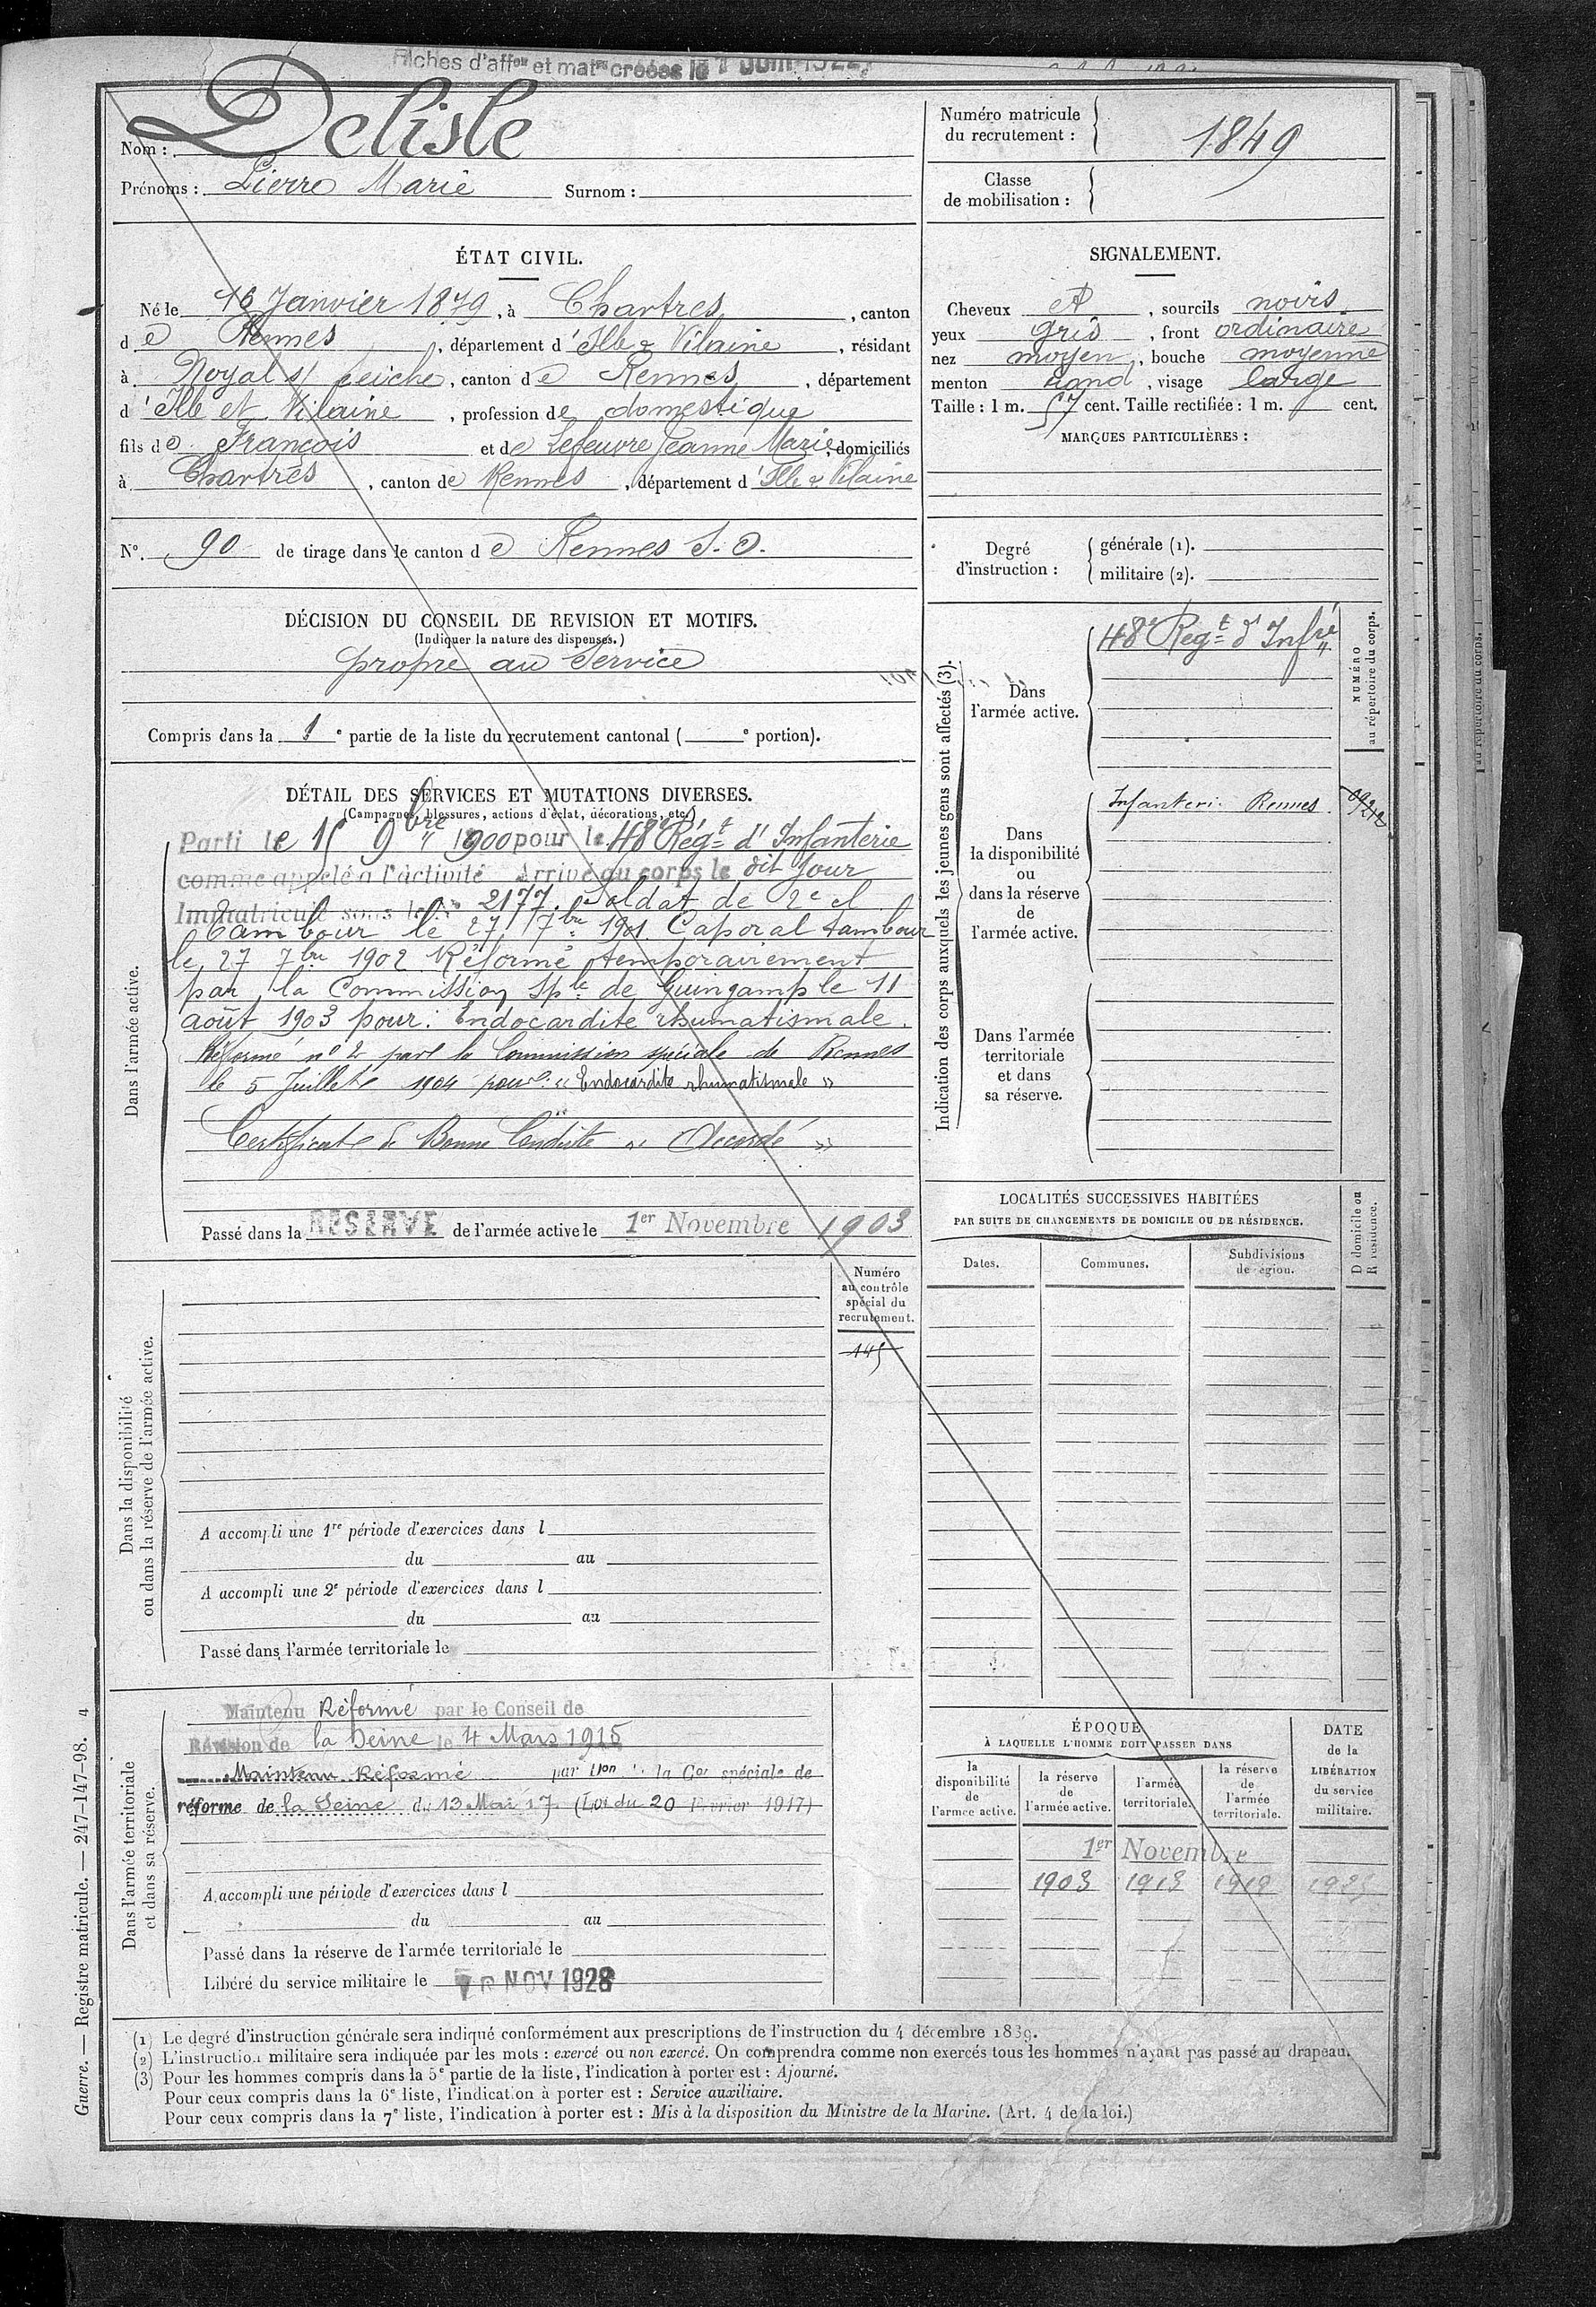 Fiches d'affon et matres créées le 1 Juin 1922
Nom : Delisle
Prénoms : Pierre Marie Surnom :
Numéro matricule
du recrutement : 1849
Classe
de mobilisation :
ÉTAT CIVIL.
Né le 16 Janvier 1879, à Chartres, canton
de Rennes, département d'Ille & Vilaine, résidant
à Noyal s/ seiche, canton de Rennes, département
d'Ille et Vilaine, profession de domestique
fils de François et de Lefeuvre Jeanne Marie, domiciliés
à Chartres, canton de Rennes, département d'Ille & Vilaine
N°. 90 de tirage dans le canton de Rennes S.O.
SIGNALEMENT.
Cheveux et, sourcils noirs
yeux gris, front ordinaire
nez moyen, bouche moyenne
menton rond, visage large
Taille : 1 m. 57 cent. Taille rectifiée : 1 m. cent.
MARQUES PARTICULIÈRES :
Degré
d'instruction :
générale (1).
militaire (2).
DÉCISION DU CONSEIL DE REVISION ET MOTIFS.
(Indiquer la nature des dispenses.)
propre au Service
Compris dans la 1e partie de la liste du recrutement cantonal ( e portion).
DÉTAIL DES SERVICES ET MUTATIONS DIVERSES.
(Campagnes, blessures, actions d'éclat, décorations, etc.)
Dans l'armée active.
Parti le 15 9bre 1900 pour le 48e Régt d'Infanterie
comme appelé à l'activité Arrivé au corps le dit jour
Immatriculé sous le n° 2177. Soldat de 2e cl
Tambour le 27 7bre 1901. Caporal tambour
le 27 7bre 1902 Réformé temporairement
par la Commission sple de Guingamp le 11
août 1903 pour : Endocardite rhumatismale.
Réformé n° 2 par la Commission spéciale de Rennes
le 5 Juillet 1904 pour : « Endocardite rhumatismale »
Certificat de Bonne Conduite « Accordé »
Passé dans la RÉSERVE de l'armée active le 1er Novembre 1903
Indication des corps auxquels les jeunes gens sont affectés (3).
Dans
l'armée active.
48e Régt d'Infrie
NUMÉRO
au répertoire du corps.
Dans
la disponibilité
ou
dans la réserve
de
l'armée active.
Infanterie Rennes
Dans l'armée
territoriale
et dans
sa réserve.
LOCALITÉS SUCCESSIVES HABITÉES
PAR SUITE DE CHANGEMENTS DE DOMICILE OU DE RÉSIDENCE.
Dates. Communes. Subdivisions
de région.
D domicile ou
R résidence.
Dans la disponibilité
ou dans la réserve de l'armée active.
Numéro
au contrôle
spécial du
recrutement.
145
A accompli une 1re période d'exercices dans l
du au
A accompli une 2e période d'exercices dans l
du au
Passé dans l'armée territoriale le
Dans l'armée territoriale
et dans sa réserve.
Maintenu Réformé par le Conseil de
Révision de la Seine le 4 Mars 1915
Maintenu Réformé par la Con spéciale de
réforme de la Seine du 13 Mai 17. (Loi du 20 Février 1917)
A accompli une période d'exercices dans l
du au
Passé dans la réserve de l'armée territoriale le
Libéré du service militaire le NOV 1928
ÉPOQUE
À LAQUELLE L'HOMME DOIT PASSER DANS
la
disponibilité
de
l'armée active.
la réserve
de
l'armée active.
l'armée
territoriale.
la réserve
de
l'armée
territoriale.
DATE
de la
LIBÉRATION
du service
militaire.
1er Novembre
1903 1913 1919 1925
Guerre. — Registre matricule. — 247-147-98. 4
(1) Le degré d'instruction générale sera indiqué conformément aux prescriptions de l'instruction du 4 décembre 1889.
(2) L'instruction militaire sera indiquée par les mots : exercé ou non exercé. On comprendra comme non exercés tous les hommes n'ayant pas passé au drapeau.
(3) Pour les hommes compris dans la 5e partie de la liste, l'indication à porter est : Ajourné.
Pour ceux compris dans la 6e liste, l'indication à porter est : Service auxiliaire.
Pour ceux compris dans la 7e liste, l'indication à porter est : Mis à la disposition du Ministre de la Marine. (Art. 4 de la loi.)